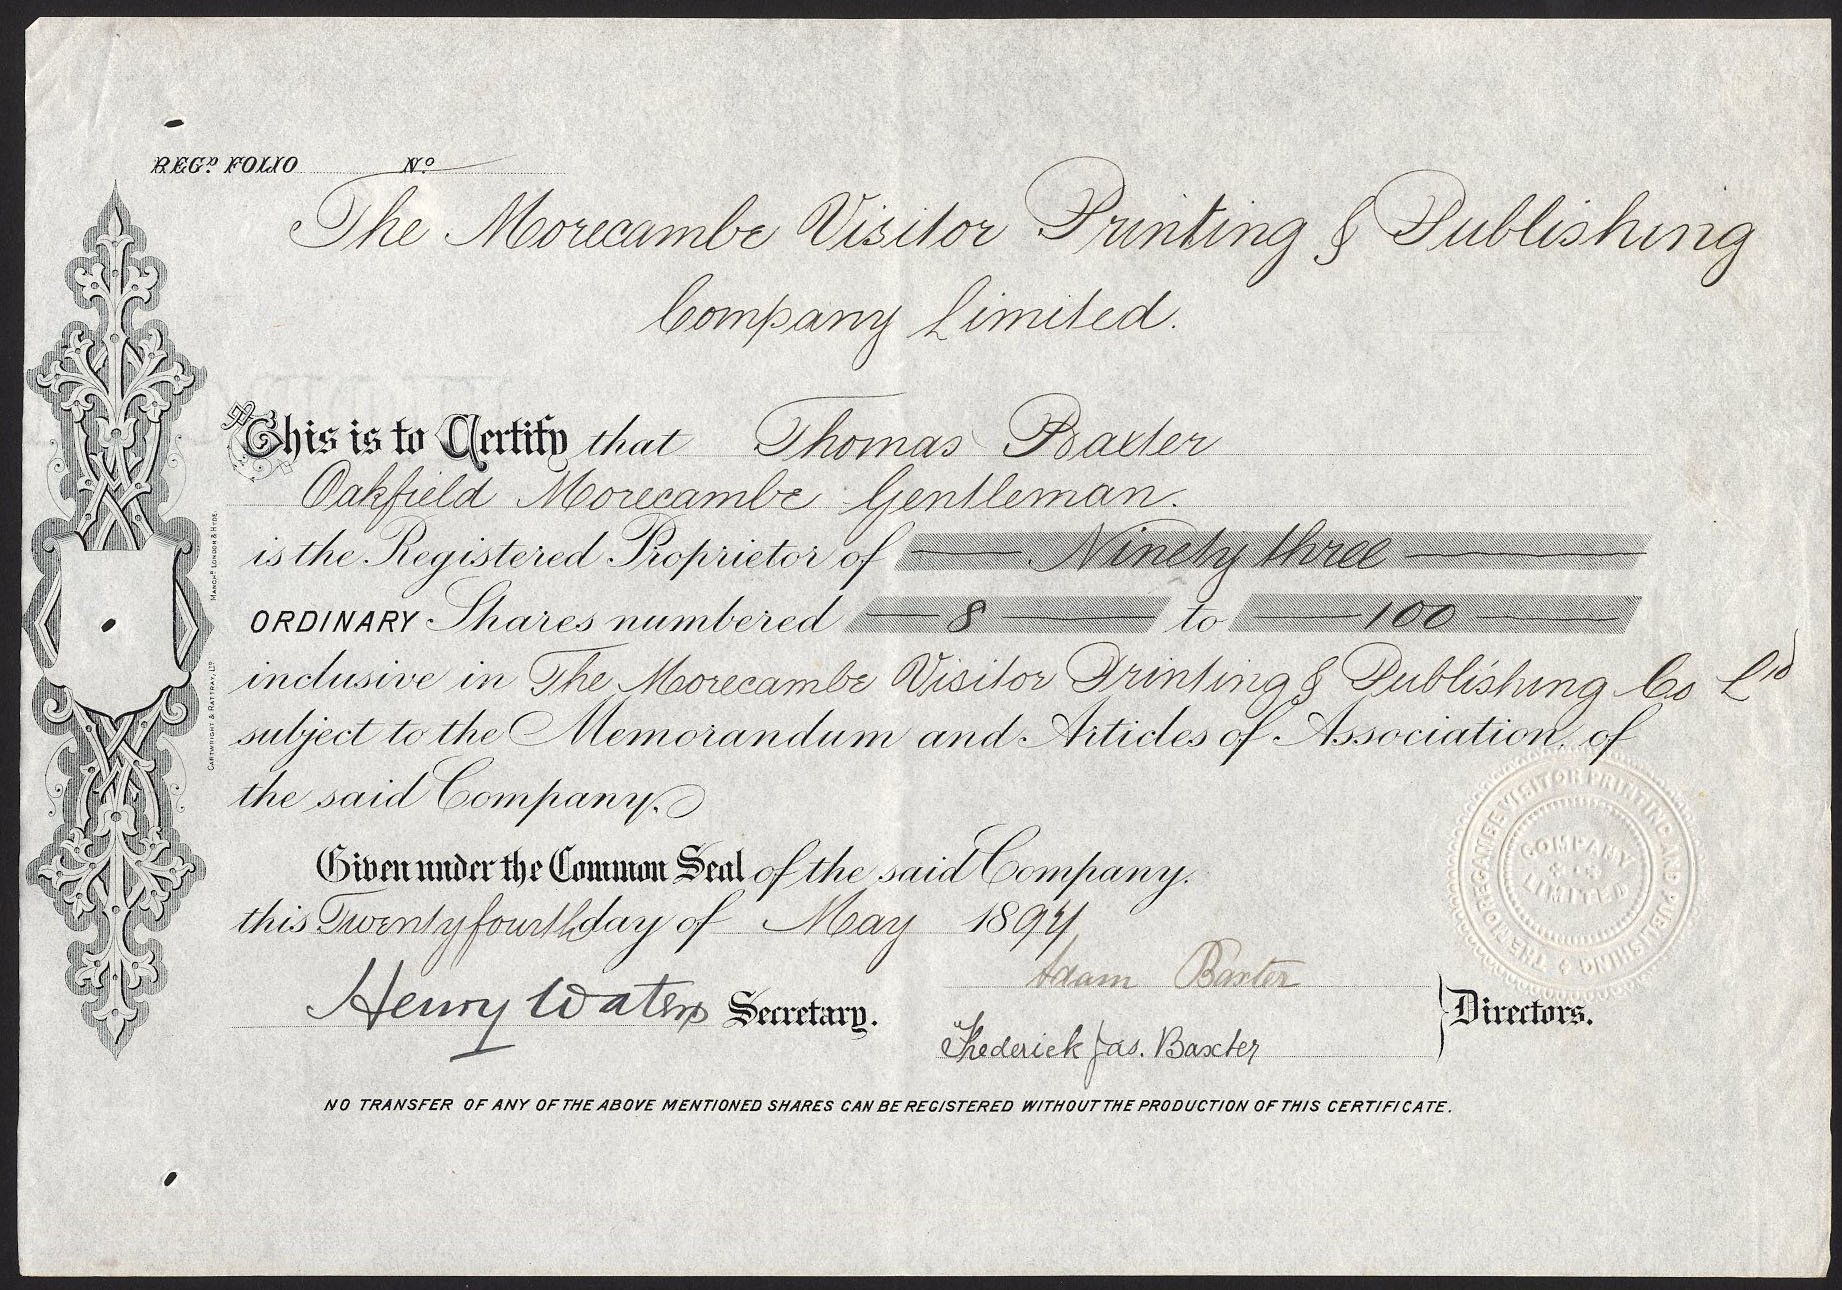 REGD. FOLIO No.
The Morecambe Visitor Printing & Publishing
Company Limited.
This is to Certify that Thomas Baxter
Oakfield Morecambe Gentleman.
is the Registered Proprietor of Ninety three
ORDINARY Shares numbered 8 to 100
inclusive in The Morecambe Visitor Printing & Publishing Co Ltd
subject to the Memorandum and Articles of Association of
the said Company.
Given under the Common Seal of the said Company.
this Twenty fourth day of May 1894
Henry Waters Secretary.
Adam Baxter
Frederick Jas. Baxter
Directors.
NO TRANSFER OF ANY OF THE ABOVE MENTIONED SHARES CAN BE REGISTERED WITHOUT THE PRODUCTION OF THIS CERTIFICATE.
CARTWRIGHT & RATTRAY, LTD. MANCHR. LONDON & HYDE.
THE MORECAMBE VISITOR PRINTING AND PUBLISHING
COMPANY
LIMITED